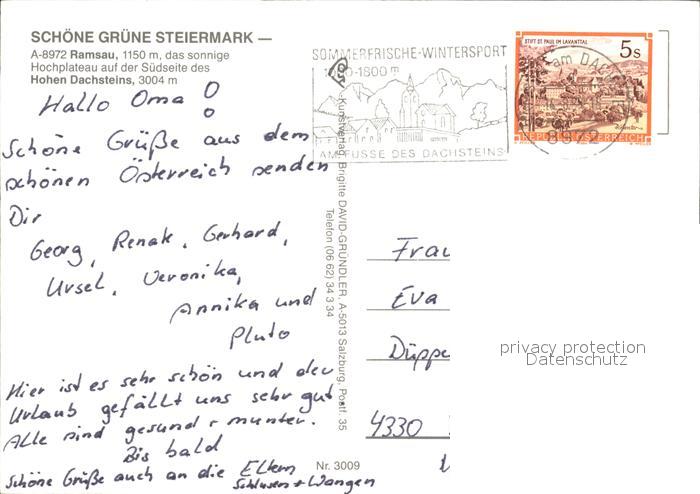 SCHÖNE GRÜNE STEIERMARK —
A-8972 Ramsau, 1150 m, das sonnige
Hochplateau auf der Südseite des
Hohen Dachsteins, 3004 m
Hallo Oma!
Schöne Grüße aus dem
schönen Österreich senden
Dir
Georg, Renate, Gerhard,
Ursel, Veronika,
Annika und
Pluto
Hier ist es sehr schön und der
Urlaub gefällt uns sehr gut.
Alle sind gesund + munter.
Bis bald
Schöne Grüße auch an die Eltern
+ Wangen
Kunstverlag Brigitte DAVID-GRÜNDLER, A-5013 Salzburg, Postf. 35
Telefon (06 62) 34 3 34
Nr. 3009
SOMMERFRISCHE-WINTERSPORT
-1800 m
AM FUSSE DES DACHSTEINS
STIFT ST. PAUL IM LAVANTTAL
5 S
REPUBLIK ÖSTERREICH
am DACH
8972
Frau
Eva
Düppe
4330
privacy protection
Datenschutz